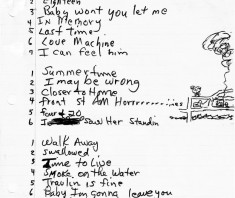 2 Eighteen
3 Baby wont you let me
4 In Memory
5 Last time
6 Love Machine
7 I can feel him
1 Summertime
2 I may be wrong
3 Closer to Home
4 Front St AM
5 four & 20
6 I Saw Her Standin
1 Walk Away
2 swallowed
3 Time to Live
4 Smoke on the Water
5 Travlin is fine
6 Baby I'm gonna leave you